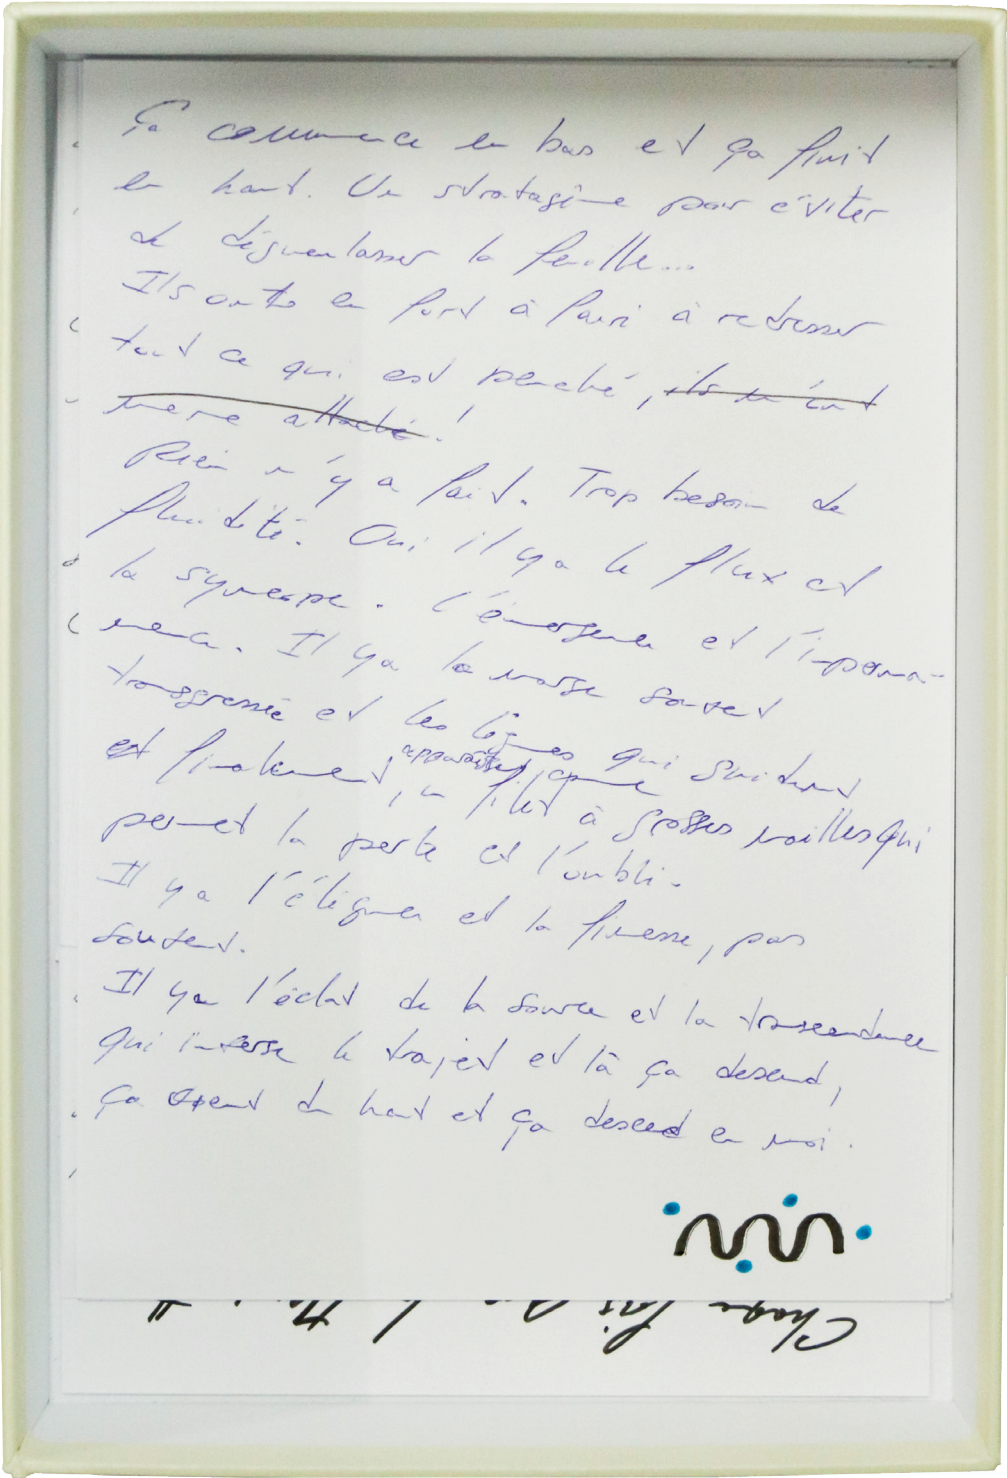 Ça commence en bas et ça finit
en haut. Un stratagème pour éviter
de dégueulasser la feuille...
Ils ont eu fort à faire à redresser
tout ce qui est penché, ils m'ont
même attaché !
Rien n'y a fait. Trop besoin de
fluidité. Oui il y a le flux et
la syncope. L'émergence et l'imperma-
nence. Il y a la marge souvent
transgressée et les lignes qui
est finalement, apparaissent comme
un filet à grosses mailles qui
permet la perte et l'oubli.
Il y a l'élégance et la finesse, pas
souvent.
Il y a l'éclat de la source et la transcendance
qui inverse le trajet et là ça descend,
ça vient du haut et ça descend en moi.
Chaque fois que